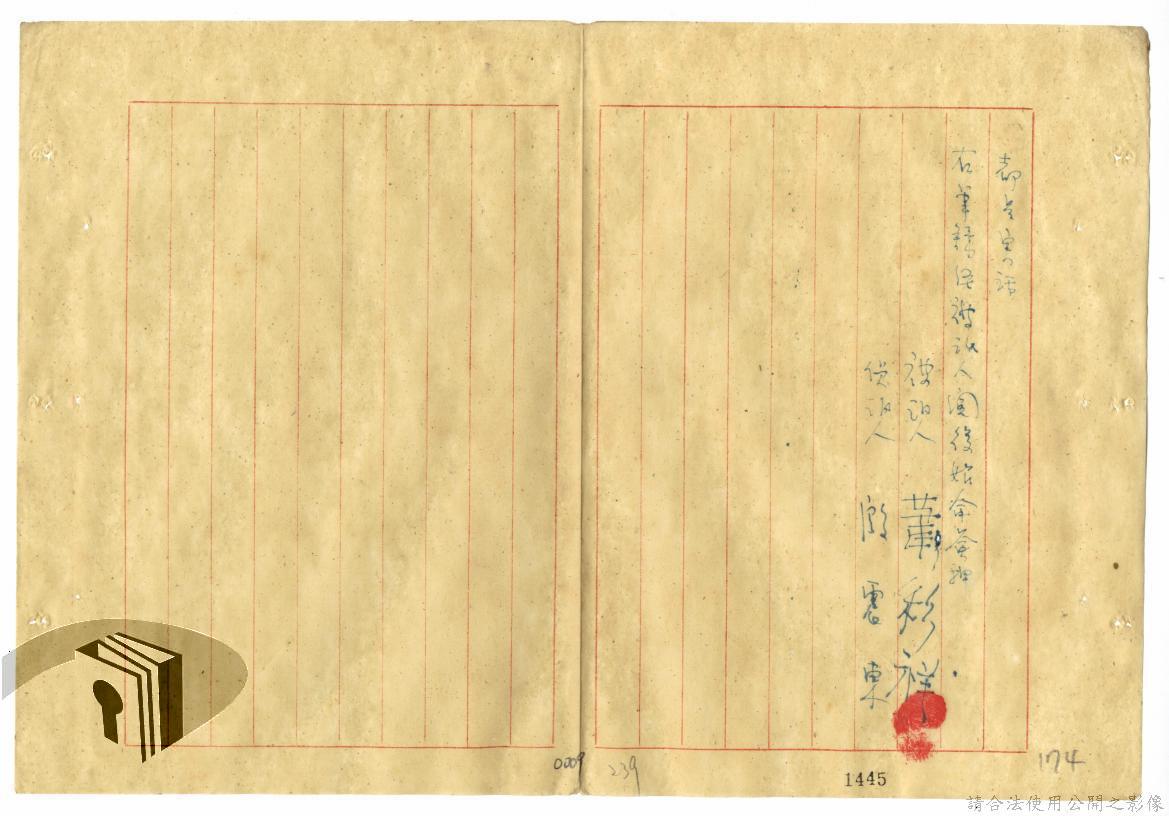 都是實話
右筆錄經被訊人閱後始命簽押
被訊人 蕭彩祥
偵訊人 殷震東
0009
239
1445
174
請合法使用公開之影像